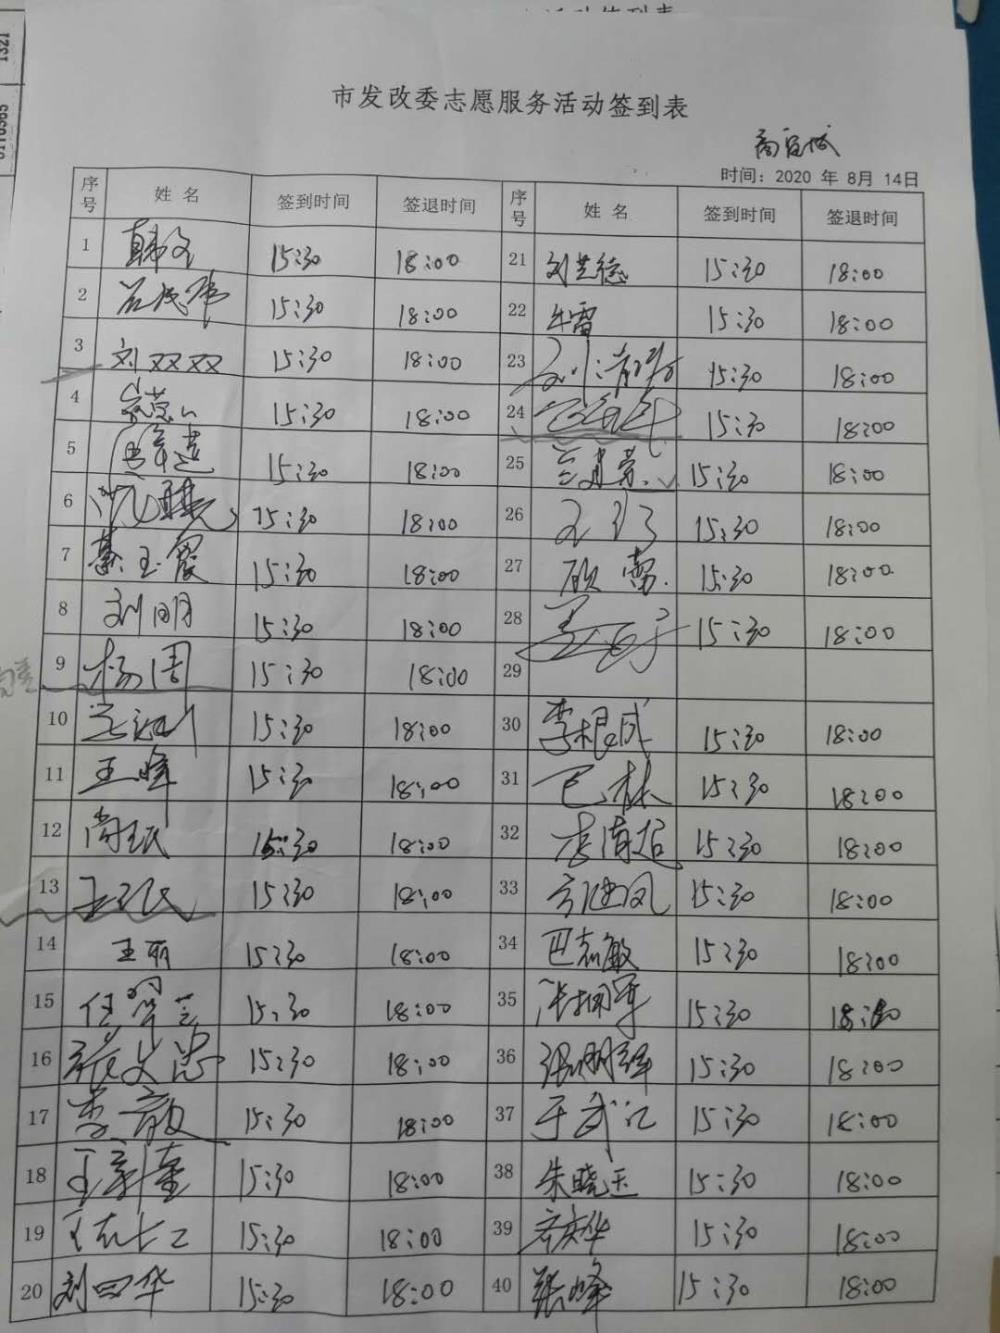 市发改委志愿服务活动签到表
时间：2020 年 8月 14日
序号 姓 名 签到时间 签退时间 序号 姓 名 签到时间 签退时间
1 韩文 15:30 18:00 21 刘芝德 15:30 18:00
2 15:30 18:00 22 牛雷 15:30 18:00
3 刘双双 15:30 18:00 23 15:30 18:00
4 15:30 18:00 24 15:30 18:00
5 15:30 18:00 25 15:30 18:00
6 15:30 18:00 26 15:30 18:00
7 綦玉霞 15:30 18:00 27 顾雷 15:30 18:00
8 刘明 15:30 18:00 28 15:30 18:00
9 杨周 15:30 18:00 29
10 15:30 18:00 30 李根成 15:30 18:00
11 王峰 15:30 18:00 31 15:30 18:00
12 尚珉 15:30 18:00 32 李清超 15:30 18:00
13 15:30 18:00 33 15:30 18:00
14 王丽 15:30 18:00 34 巴志敏 15:30 18:00
15 15:30 18:00 35 15:30 18:00
16 张文忠 15:30 18:00 36 张明辉 15:30 18:00
17 李毅 15:30 18:00 37 于武江 15:30 18:00
18 15:30 18:00 38 朱晓玉 15:30 18:00
19 15:30 18:00 39 齐庆华 15:30 18:00
20 刘四华 15:30 18:00 40 张峰 15:30 18:00